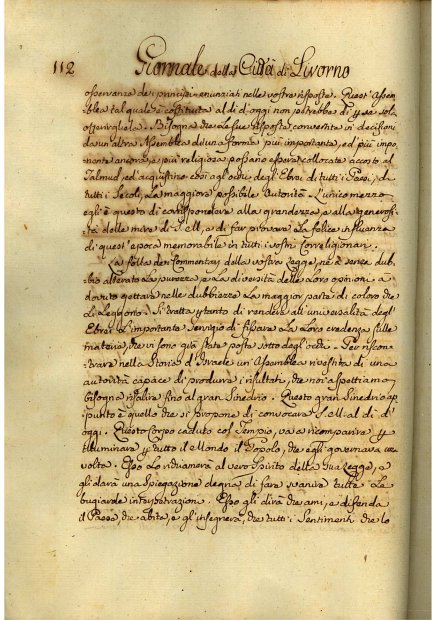 112 Giornale della Città di Livorno
osservanza de i principj enunziati nelle vostre risposte. Quest' Assem-
blea tal quale è costituita al dì d'oggi non potrebbe di per se sola
Bisogna che le sue risposte convertite in decisioni
da un' altra Assemblea di una forma più importante, ed più impo-
nente ancora, e più religiosa possano essere collocate accanto al
Talmud, ed acquistino così agl' occhi degl' Ebrei di tutti i Paesi, da
tutti i Secoli, la maggiore possibile Autorità. L'unico mezzo
egli è questo di corrispondere alla grandezza, e alla generosi-
tà delle mire di S. M., e di far provare la felice influenza
di quest' epoca memorabile in tutti i vostri Correligionari.
La folla dei Commentarj della vostra Legge, ne à senza dub-
bio alterato la purezza e la diversità delle loro opinioni à
dovuto gettare nelle dubbiezze la maggior parte di coloro che
li leggono. Si tratta pertanto di rendere all' universalità degl'
Ebrei l' importante servizio di fissare la loro credenza sulle
materie, che vi sono già state poste sotto degl' occhi. Per riscon-
trare nella Storia d' Israele un' Assemblea rivestita di una
autorità capace di produrre i risultati, che noi aspettiamo
bisogna risalire fino al gran Sinedrio. Questo gran Sinedrio ap-
punto è quello che si propone di convocare S. M. al dì d'
oggi. Questo Corpo caduto col Tempio, va a ricomparire per
illuminare per tutto il Mondo il Popolo, che egli governava una
volta. Esso lo richiamerà al vero Spirito della sua Legge, e
gli darà una Spiegazione degna di fare svanire tutte le
bugiarde interpretazioni. Esso gli dirà che ami, e difenda
il Paese che abita, e gl' insegnerà, che tutti i Sentimenti che lo